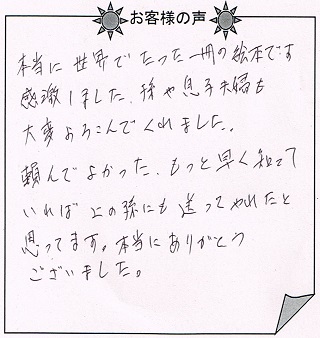 お客様の声
本当に世界でたった一冊の絵本です
感激しました。孫や息子夫婦も
大変よろこんでくれました。
頼んでよかった、もっと早く知って
いれば上の孫にも送ってやれたと
思ってます。本当にありがとう
ございました。